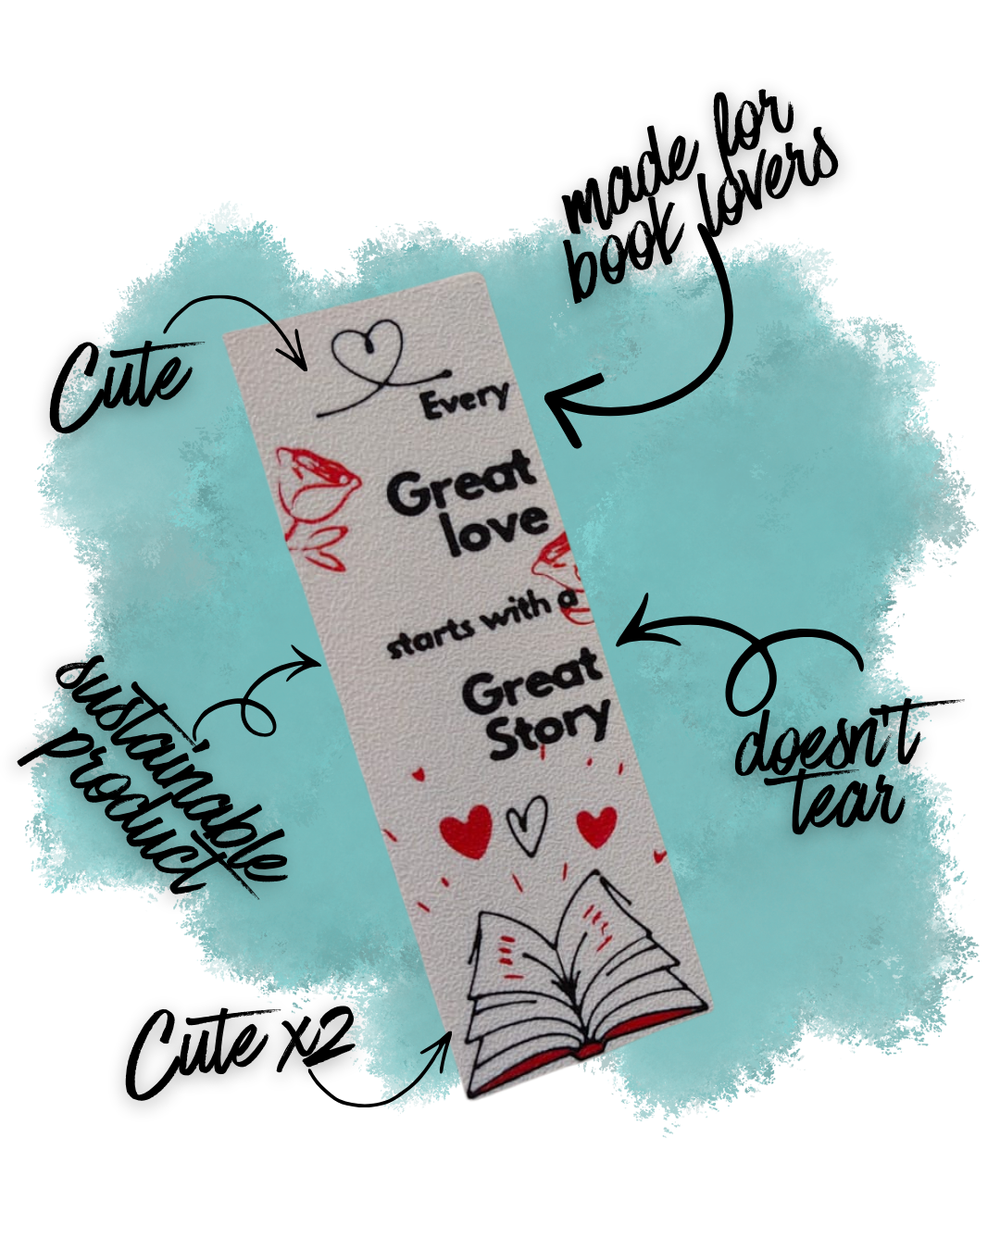 made for
book lovers
Cute
Every
Great
love
starts with a
Great
Story
sustainable
product
doesn't
tear
Cute x2